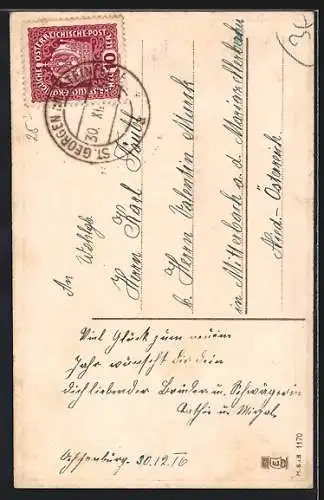 KAISERLICHE ÖSTERREICHISCHE POST
10
ST. GEORGEN
30. XII
An Wohlgb.
Herrn Karl
b. Herrn Valentin Munk
in Mitterbach a. d. Mariazellerbahn
Nied.-Österreich.
Viel Glück zum neuem
Jahr wünscht dir dein
dichliebender Bruder u. Schwägerin
u.
30.12.16
M.S.i.B 1170
28